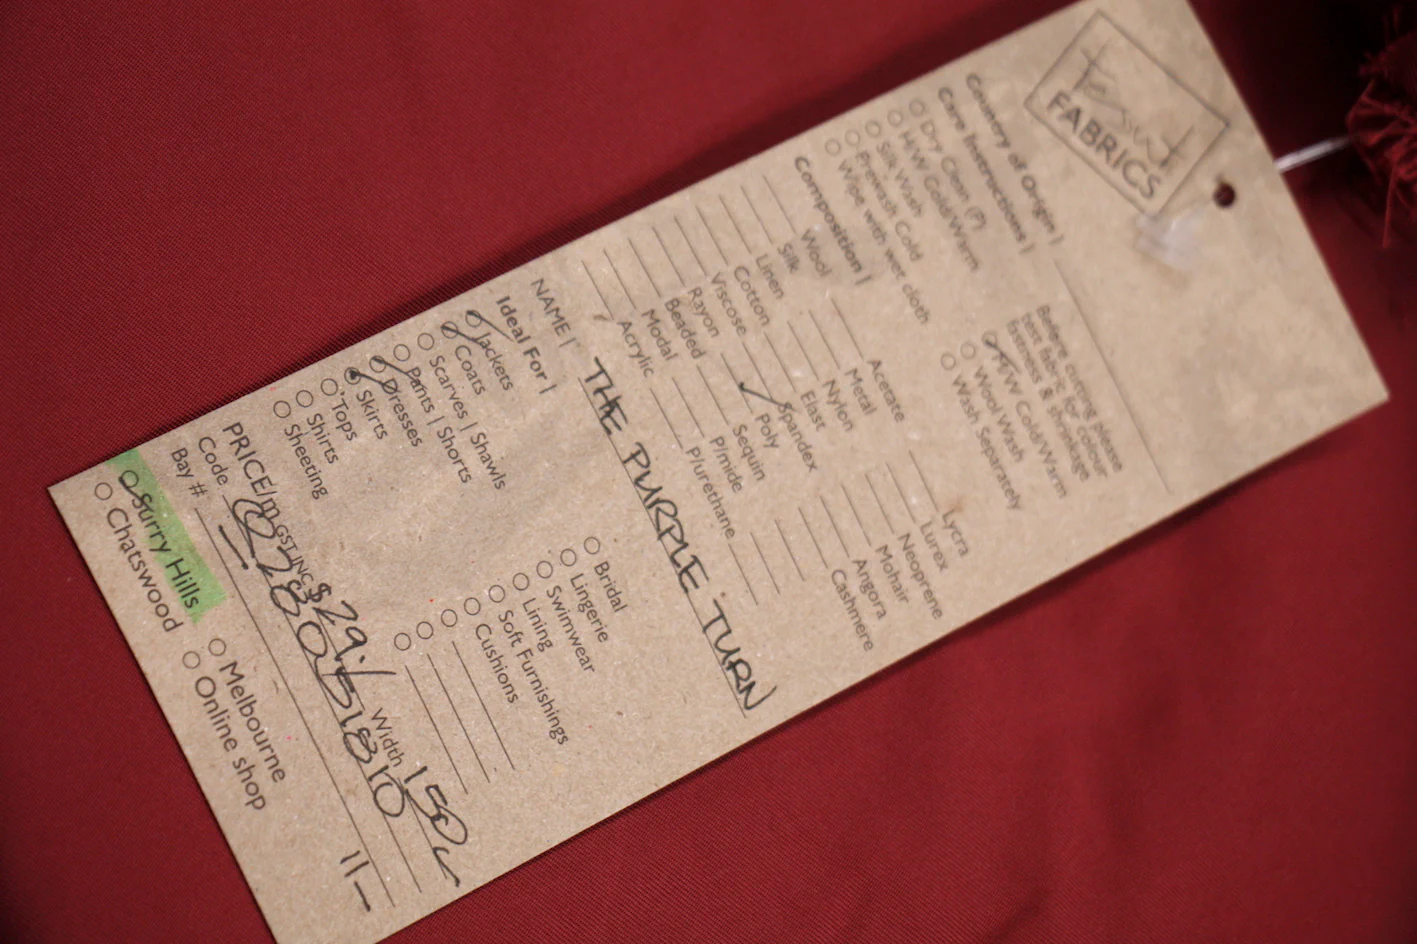 Tessuti
FABRICS
Country of Origin |
Care Instructions |
Dry Clean (P)
H/W Cold/Warm
Silk Wash
Prewash Cold
Wipe with wet cloth
Before cutting please
test fabric for colour
fastness & shrinkage
H/W Cold/Warm
Wool Wash
Wash Separately
Composition |
Wool
Silk
Linen
Cotton
Viscose
Rayon
Beaded
Modal
Acrylic
Acetate
Metal
Nylon
Elast
Spandex
Poly
Sequin
P/mide
P/urethane
Lycra
Lurex
Neoprene
Mohair
Angora
Cashmere
NAME | THE PURPLE TURN
Ideal For |
Jackets
Coats
Scarves | Shawls
Pants | Shorts
Dresses
Skirts
Tops
Shirts
Sheeting
Bridal
Lingerie
Swimwear
Lining
Soft Furnishings
Cushions
PRICE/m GST INC $29. Width 150
Code
Bay #
Surry Hills
Chatswood
Melbourne
Online shop